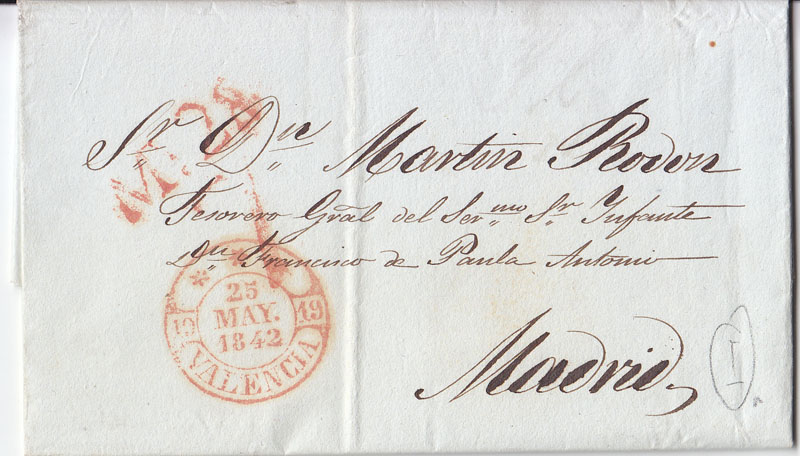 Sr. Dn. Martin Rodon
Tesorero Gral del Sermo. Sr. Infante
Dn. Francisco de Paula Antonio
Madrid
19 19
25
MAY.
1842
VALENCIA